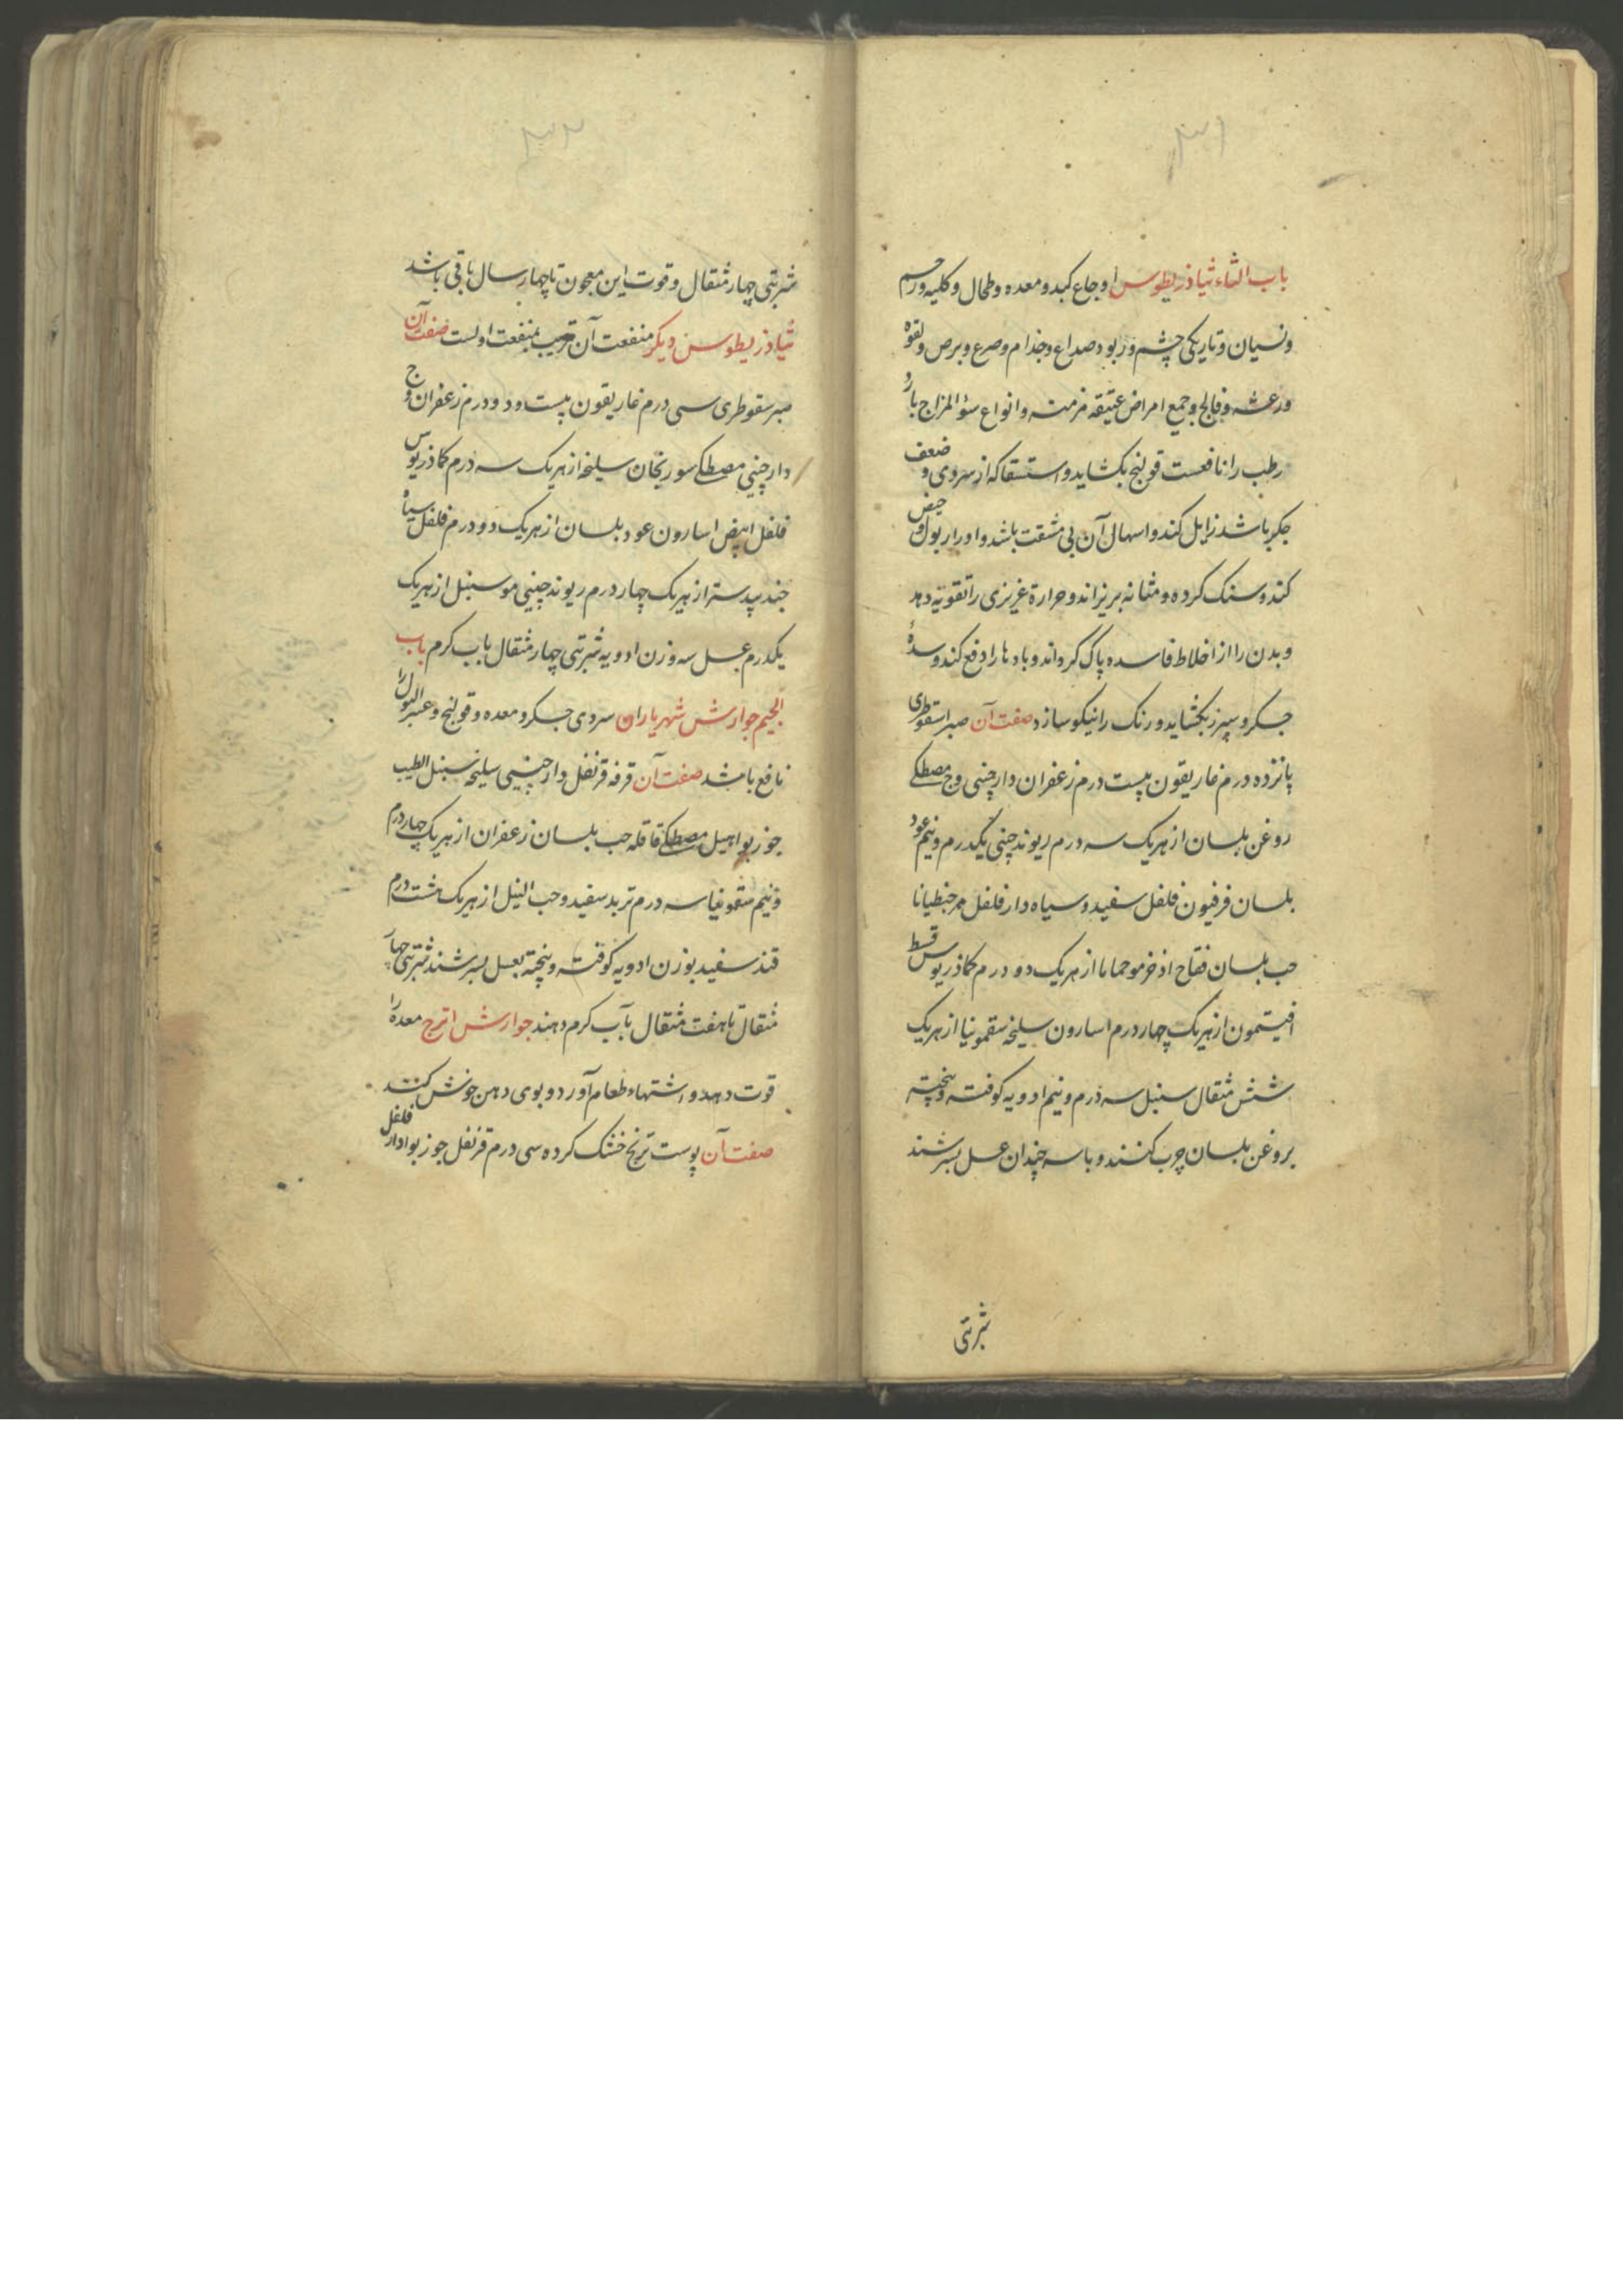 ۳۱
باب الثاء ثیاذریطوس اوجاع کبد و معده و طحال و کلیه و رحم
و نسیان و تاریکی چشم و ربو و صداع و جذام و صرع و برص و لقوه
و رعشه و فالج و جمیع امراض عتیقه مزمنه و انواع سؤ المزاج بارد
رطب را نافعست قولنج بکشاید و استسقا که از سردی و ضعف
جکر باشد زایل کند و اسهال آن بی مشقت باشد و ادرار بول و حیض
کند و سنک کرده و مثانه بریزاند و حرارة غریزی را تقویة دهد
و بدن را از اخلاط فاسده پاک کرداند و بادها را دفع کند و سدهٔ
جکر و سپرز بکشاید و رنک را نیکو سازد صفت آن صبر اسقوطری
پانزده درم غاریقون بیست درم زعفران دارچینی وج مصطکی
روغن بلسان از هریک سه درم ریوند چینی یکدرم و نیم عود
بلسان فرفیون فلفل سفید و سیاه دارفلفل مر جنطیانا
حب بلسان فقاح اذخر مو حماما از هریک دو درم کماذریوس قسط
افیتمون از هریک چهار درم اسارون سلیخه سقمونیا از هریک
شش مثقال سنبل سه درم و نیم ادویه کوفته و پخته
بروغن بلسان چرب کنند و با سه چندان عسل بسرشند
شربتی
۳۲
شربتی چهار مثقال و قوت این معجون تا چهار سال باقی باشد
ثیاذریطوس دیکر منفعت آن قریب بمنفعت اولست صفت آن
صبر سقوطری سی درم غاریقون بیست و دو درم زعفران وج
دارچینی مصطکی سورنجان سلیخه از هریک سه درم کماذریوس
فلفل ابیض اسارون عود بلسان از هریک دو درم فلفل سیاه
جند بیدستر از هریک چهار درم ریوند چینی مو سنبل از هریک
یکدرم عسل سه وزن ادویه شربتی چهار مثقال باب کرم باب
الجیم جوارش شهریاران سردی جکر و معده و قولنج و عسر البول را
نافع باشد صفت آن قرفه قرنفل دارچینی سلیخه سنبل الطیب
جوزبوا هیل مصطکی قاقله حب بلسان زعفران از هریک چهار درم
و نیم سقمونیا سه درم تربد سفید و حب النیل از هریک هشت درم
قند سفید بوزن ادویه کوفته و پخته بعسل بسرشند شربتی چهار
مثقال تا هفت مثقال بآب کرم دهند جوارش اترج معده را
قوت دهد و اشتهاء طعام آورد و بوی دهن خوش کند
صفت آن پوست ترنج خشک کرده سی درم قرنفل جوزبوا دارفلفل